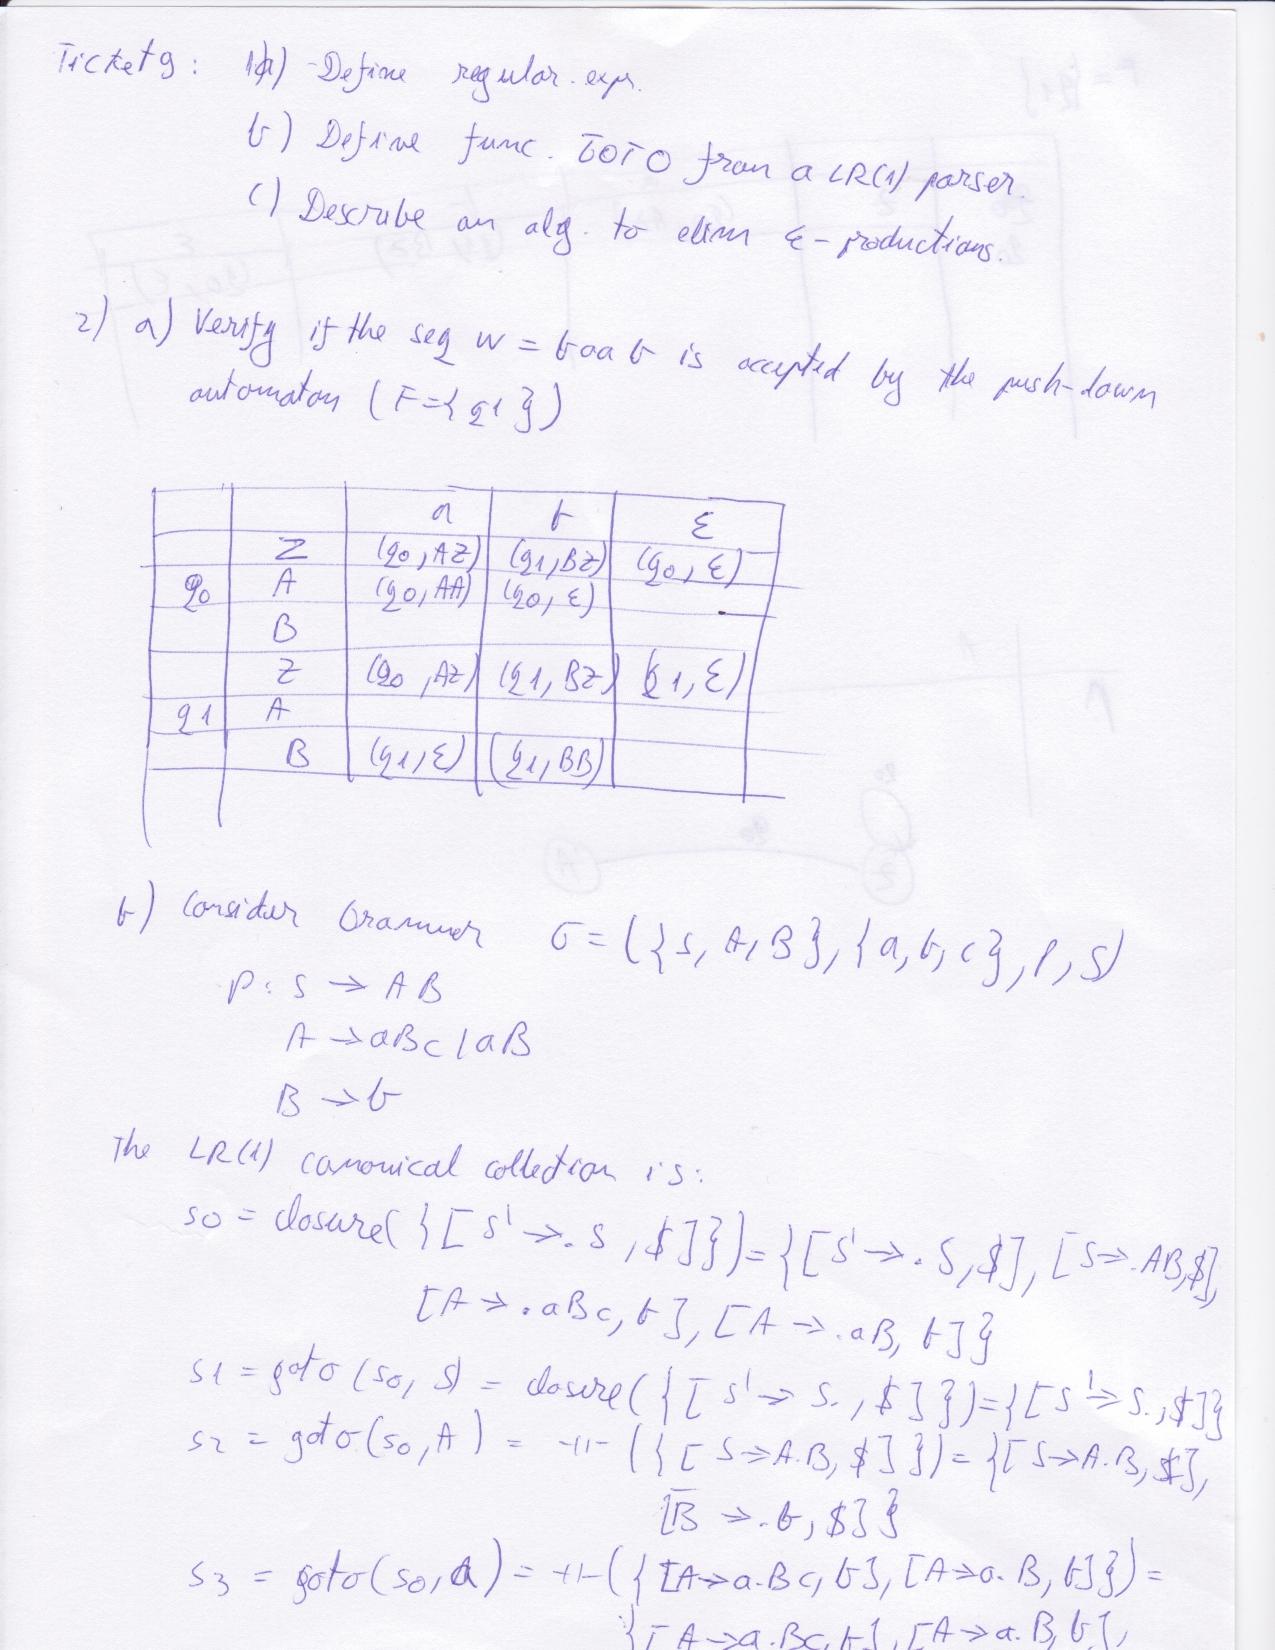 Ticket 9: 1a) Define regular. expr.
b) Define func. GOTO from a LR(1) parser.
c) Describe an alg. to elim ε-productions.
2) a) Verify if the seq w = baab is accepted by the push-down
automaton (F={q1})
a b ε
Z (q0, AZ) (q1, BZ) (q0, ε)
q0 A (q0, AA) (q0, ε)
B
Z (q0, AZ) (q1, BZ) (q1, ε)
q1 A
B (q1, ε) (q1, BB)
b) Consider Grammer G = ({S, A, B}, {a, b, c}, P, S)
P: S → AB
A → aBc | aB
B → b
The LR(1) canonical collection is:
s0 = closure({[S' → .S, $]}) = {[S' → .S, $], [S → .AB, $],
[A → .aBc, b], [A → .aB, b]}
s1 = goto(s0, S) = closure({[S' → S., $]}) = {[S' → S., $]}
s2 = goto(s0, A) = -11- ({[S → A.B, $]}) = {[S → A.B, $],
[B → .b, $]}
s3 = goto(s0, a) = -11- ({[A → a.Bc, b], [A → a.B, b]}) =
{[A → a.Bc, b], [A → a.B, b],